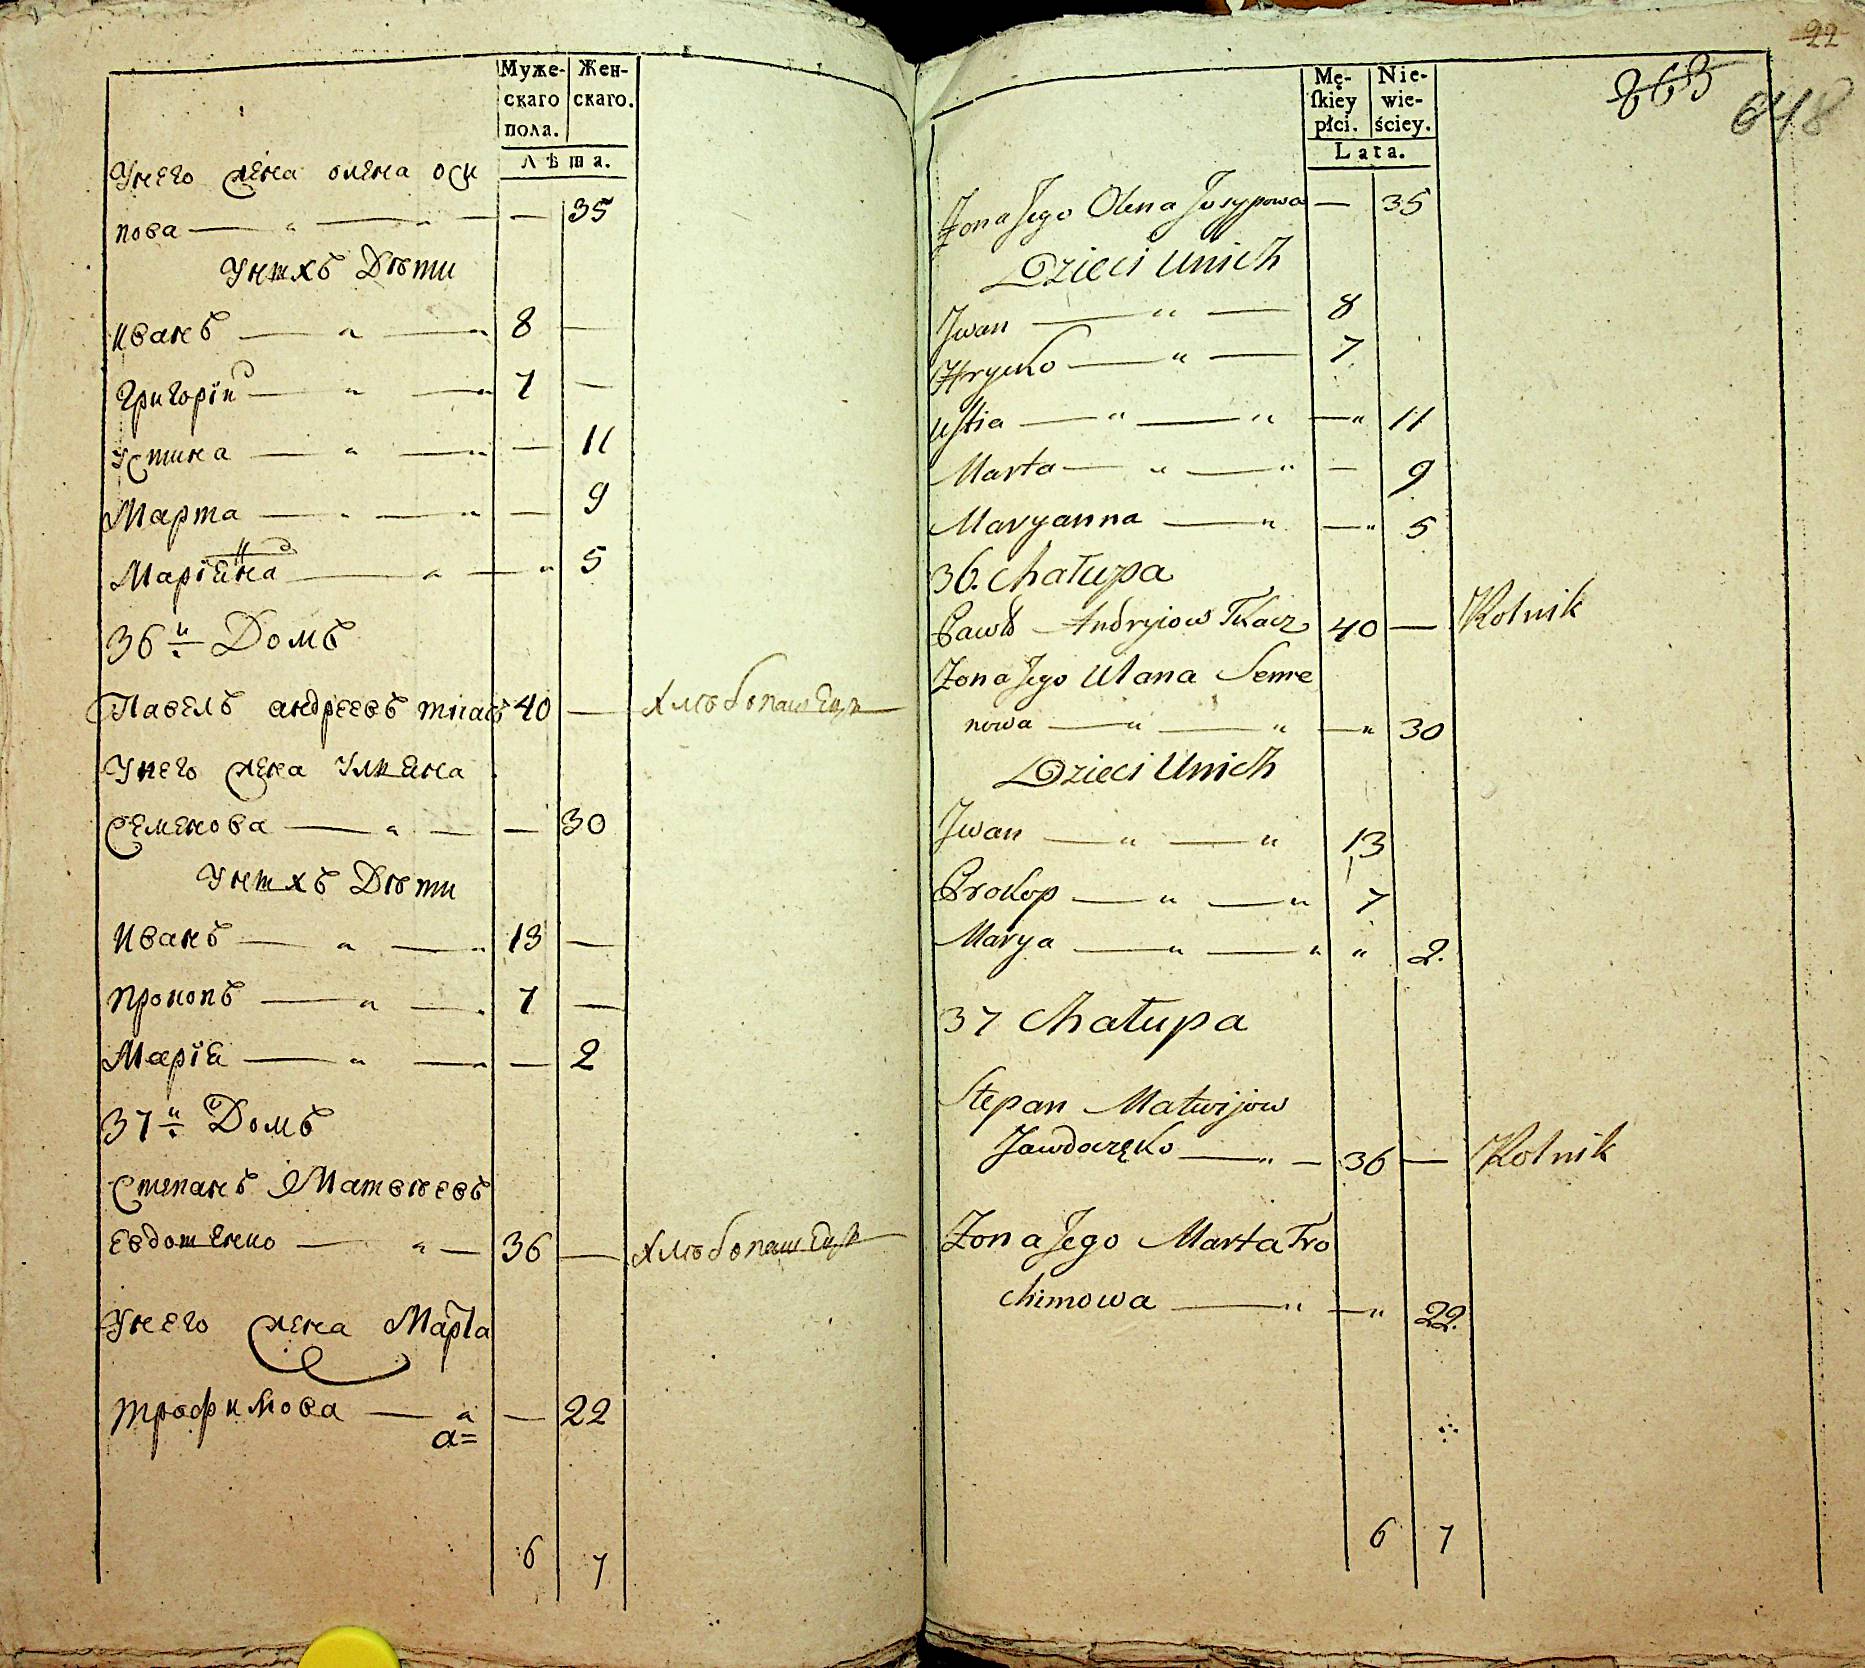 Муже-
скаго
пола.
Жен-
скаго.
Лѣта.
Унего жена олена оси
пова — " — " — — 35
Унихъ Дѣти
иванъ — " — " 8 —
Григорій — " — " 7 —
устина — " — " — 11
Марта — " — " — 9
Маріяна — " — " 5
36й Домъ
Павелъ андреевъ ткачъ 40 — хлѣбопашецъ
Унего жена Улияна
Семенова — " — — 30
Унихъ Дѣти
иванъ — " — " 13 —
прокопъ — " — . 7 —
Марія — " — " — 2
37й Домъ
Степанъ Матвѣевъ
евдошенко — " — 36 — хлѣбопашецъ
Унего жена Марта
трофимова — " — 22
а=
6 7
22
863
648
Mę-
ſkiey
płci.
Nie-
wie-
ściey.
Lata.
Żona Jego Olena Josypowa — 35
Dzieci Unich
Jwan — " — 8
Hrycko — " — 7
Uſtia — " — " — " 11
Marta — " — " — 9
Maryanna — " — " 5
36. Chałupa
Pawło Andryiow Tkacz 40 — Rolnik
Żona Jego Ulana Seme
nowa — " — " — " 30
Dzieci Unich
Jwan — " — " 13
Prokop — " — " 7
Marya — " — " " 2.
37 Chałupa
Stepan Matwijow
Jawdoszęko — " — 36 — Rolnik
Żona Jego Marta Tro
chimowa — " — " 22.
6 7